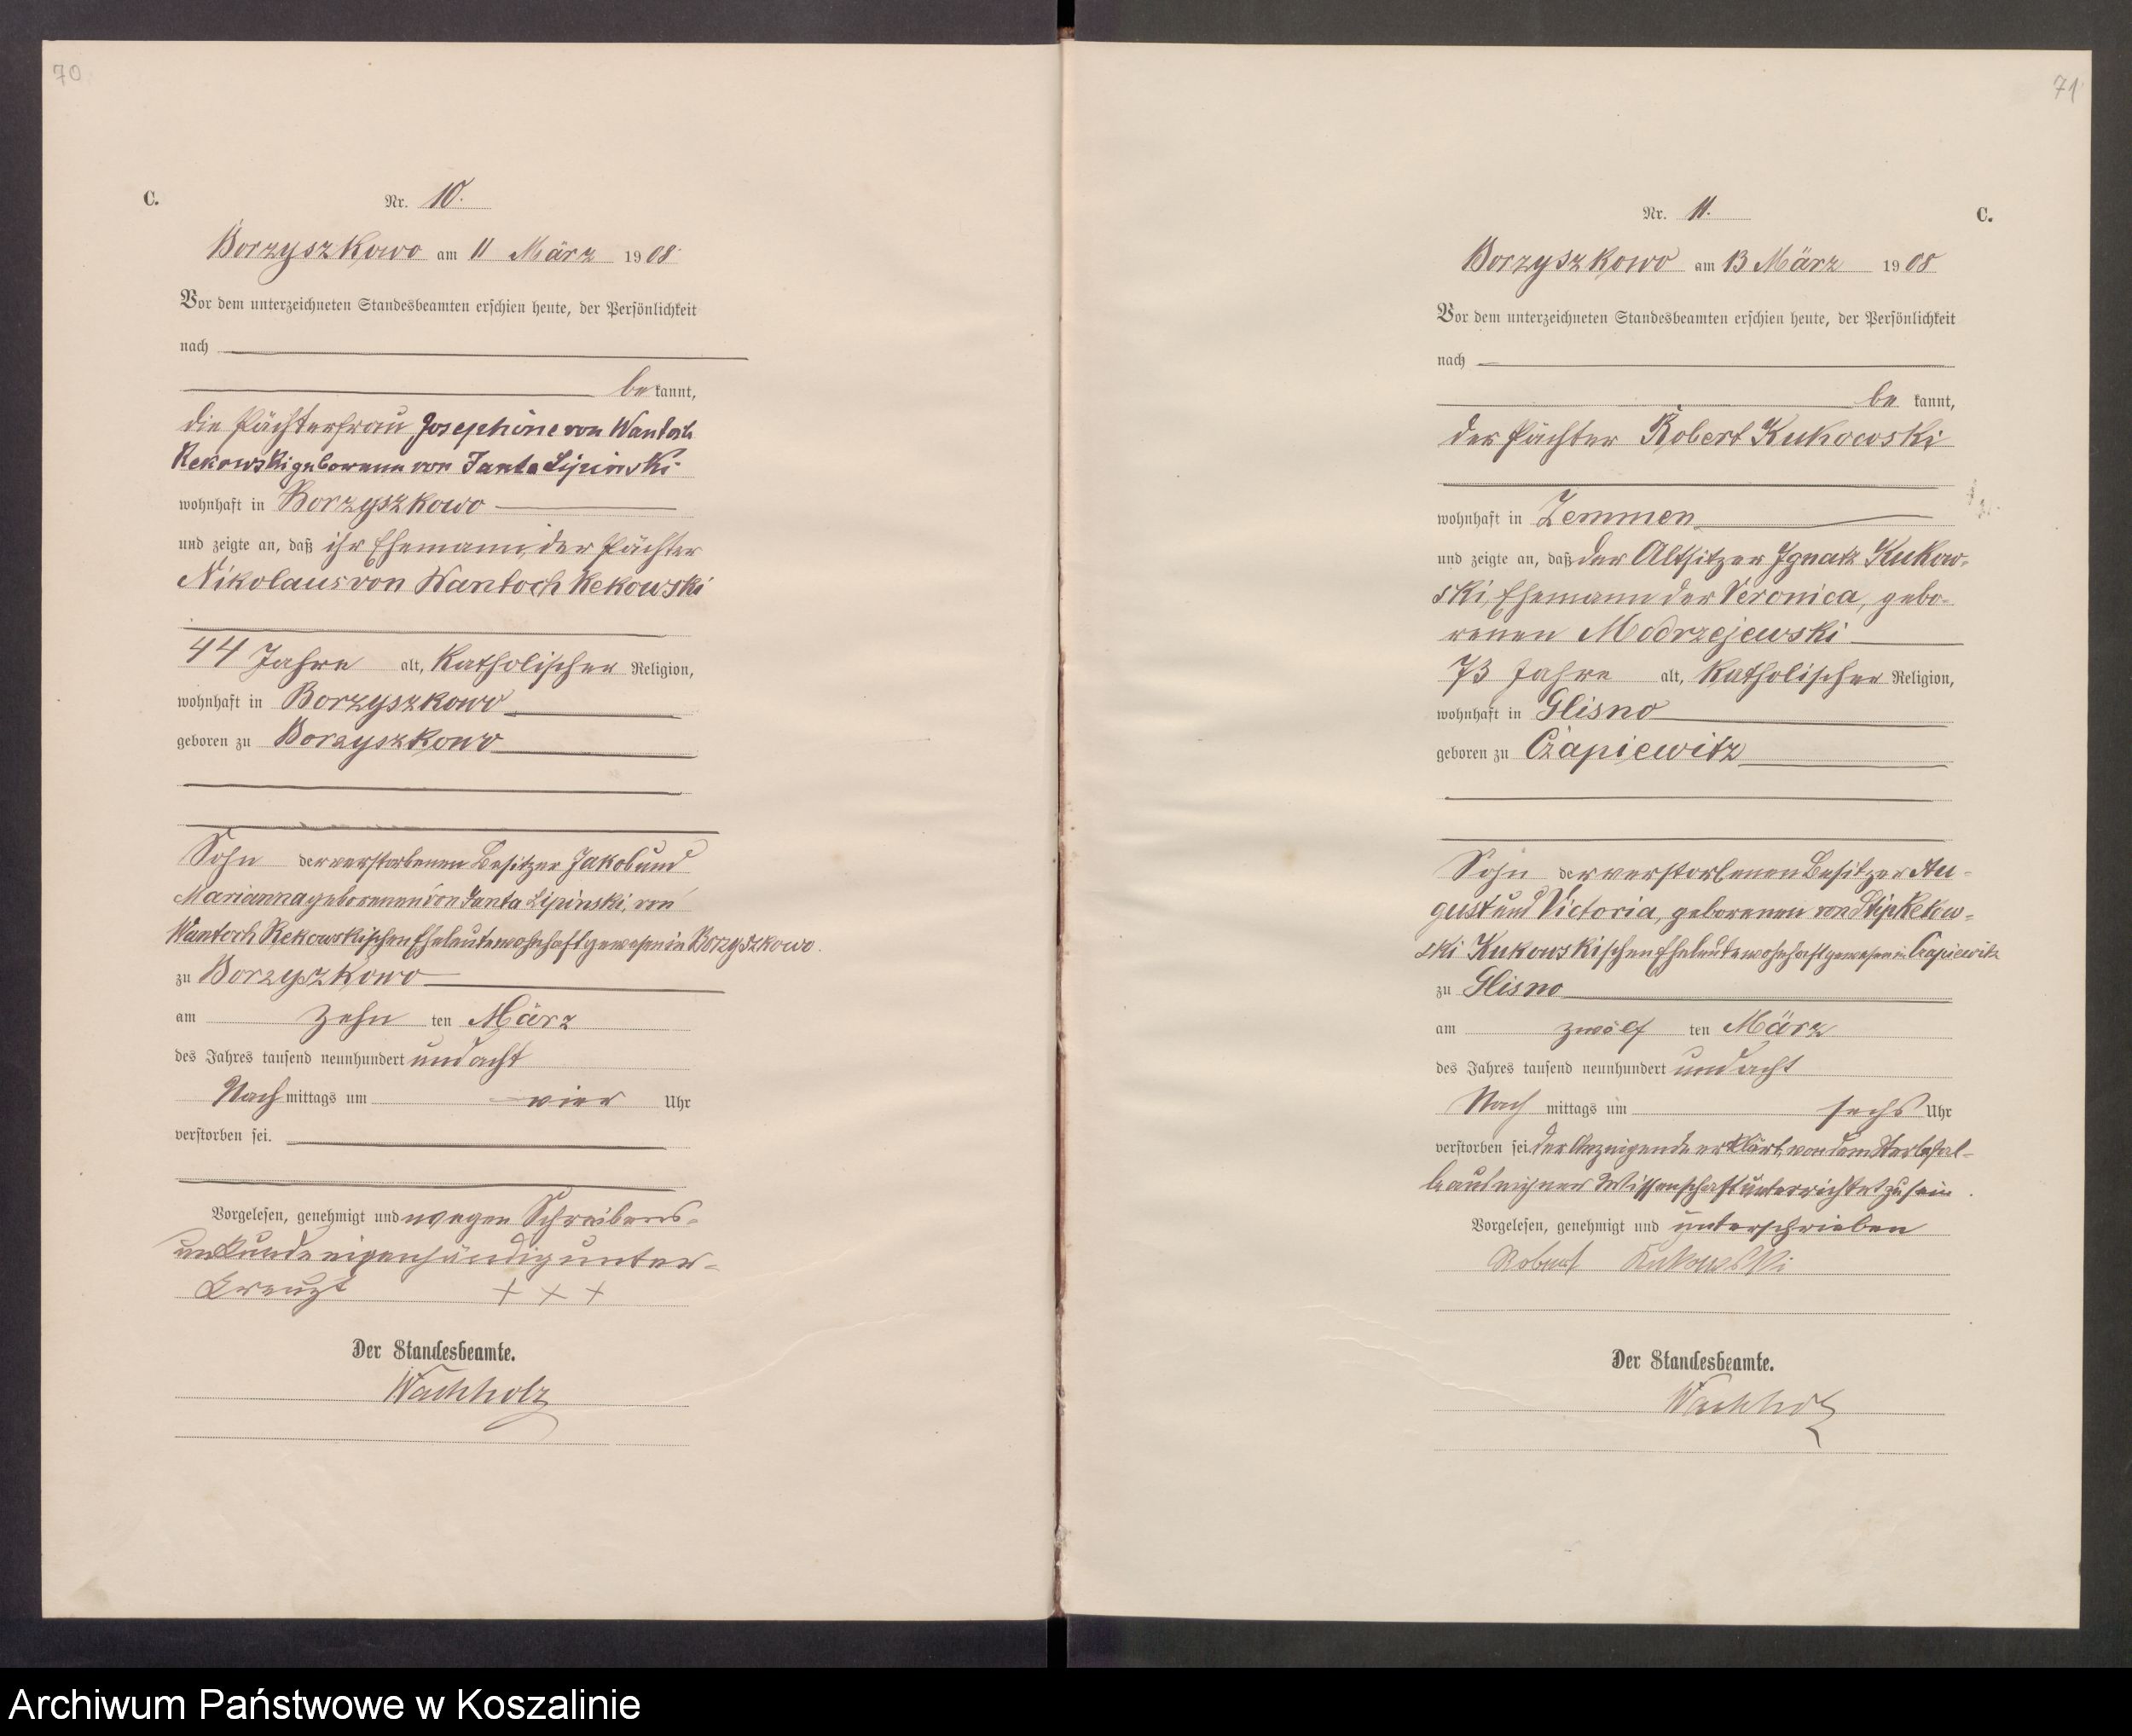 70
C.
Nr. 10.
Borzyszkowo am 11 März 1908.
Vor dem unterzeichneten Standesbeamten erschien heute, der Persönlichkeit
nach
be kannt,
die Pächterfrau Josephine von Wantoch
Rekowski geborene von Janta Lipinski
wohnhaft in Borzyszkowo
und zeigte an, daß ihr Ehemann, der Pächter
Nikolaus von Wantoch Rekowski
44 Jahre alt, Katholischer Religion,
wohnhaft in Borzyszkowo
geboren zu Borzyszkowo
Sohn der verstorbenen Besitzer Jakob und
Marianna geborenen von Janta Lipinski, von
Wantoch Rekowskischen Eheleute wohnhaft gewesen in Borzyszkowo.
zu Borzyszkowo
am zehn ten März
des Jahres tausend neunhundert und acht
Nach mittags um vier Uhr
verstorben sei.
Vorgelesen, genehmigt und wegen Schreibens-
unkunde eigenhändig unter-
kreuzt + + +
Der Standesbeamte.
Wachholz
71
Nr. 11.
C.
Borzyszkowo am 13 März 1908
Vor dem unterzeichneten Standesbeamten erschien heute, der Persönlichkeit
nach
be kannt,
der Pächter Robert Kukowski
wohnhaft in Zemmen
und zeigte an, daß der Altsitzer Ignatz Kukow-
ski, Ehemann der Veronica, gebo-
renen Modrzejewski
73 Jahre alt, Katholischer Religion,
wohnhaft in Glisno
geboren zu Czapiewitz
Sohn der verstorbenen Besitzer Au-
gust und Victoria, geborenen von Stip Rekow-
ski Kukowskischen Eheleute wohnhaft gewesen in Czapiewitz
zu Glisno
am zwölf ten März
des Jahres tausend neunhundert und acht
Nach mittags um sechs Uhr
verstorben sei. Der Anzeigende erklärt, von dem Sterbefal-
le aus eigener Wissenschaft unterrichtet zu sein.
Vorgelesen, genehmigt und unterschrieben
Robert Kukowski
Der Standesbeamte.
Wachholz
Archiwum Państwowe w Koszalinie